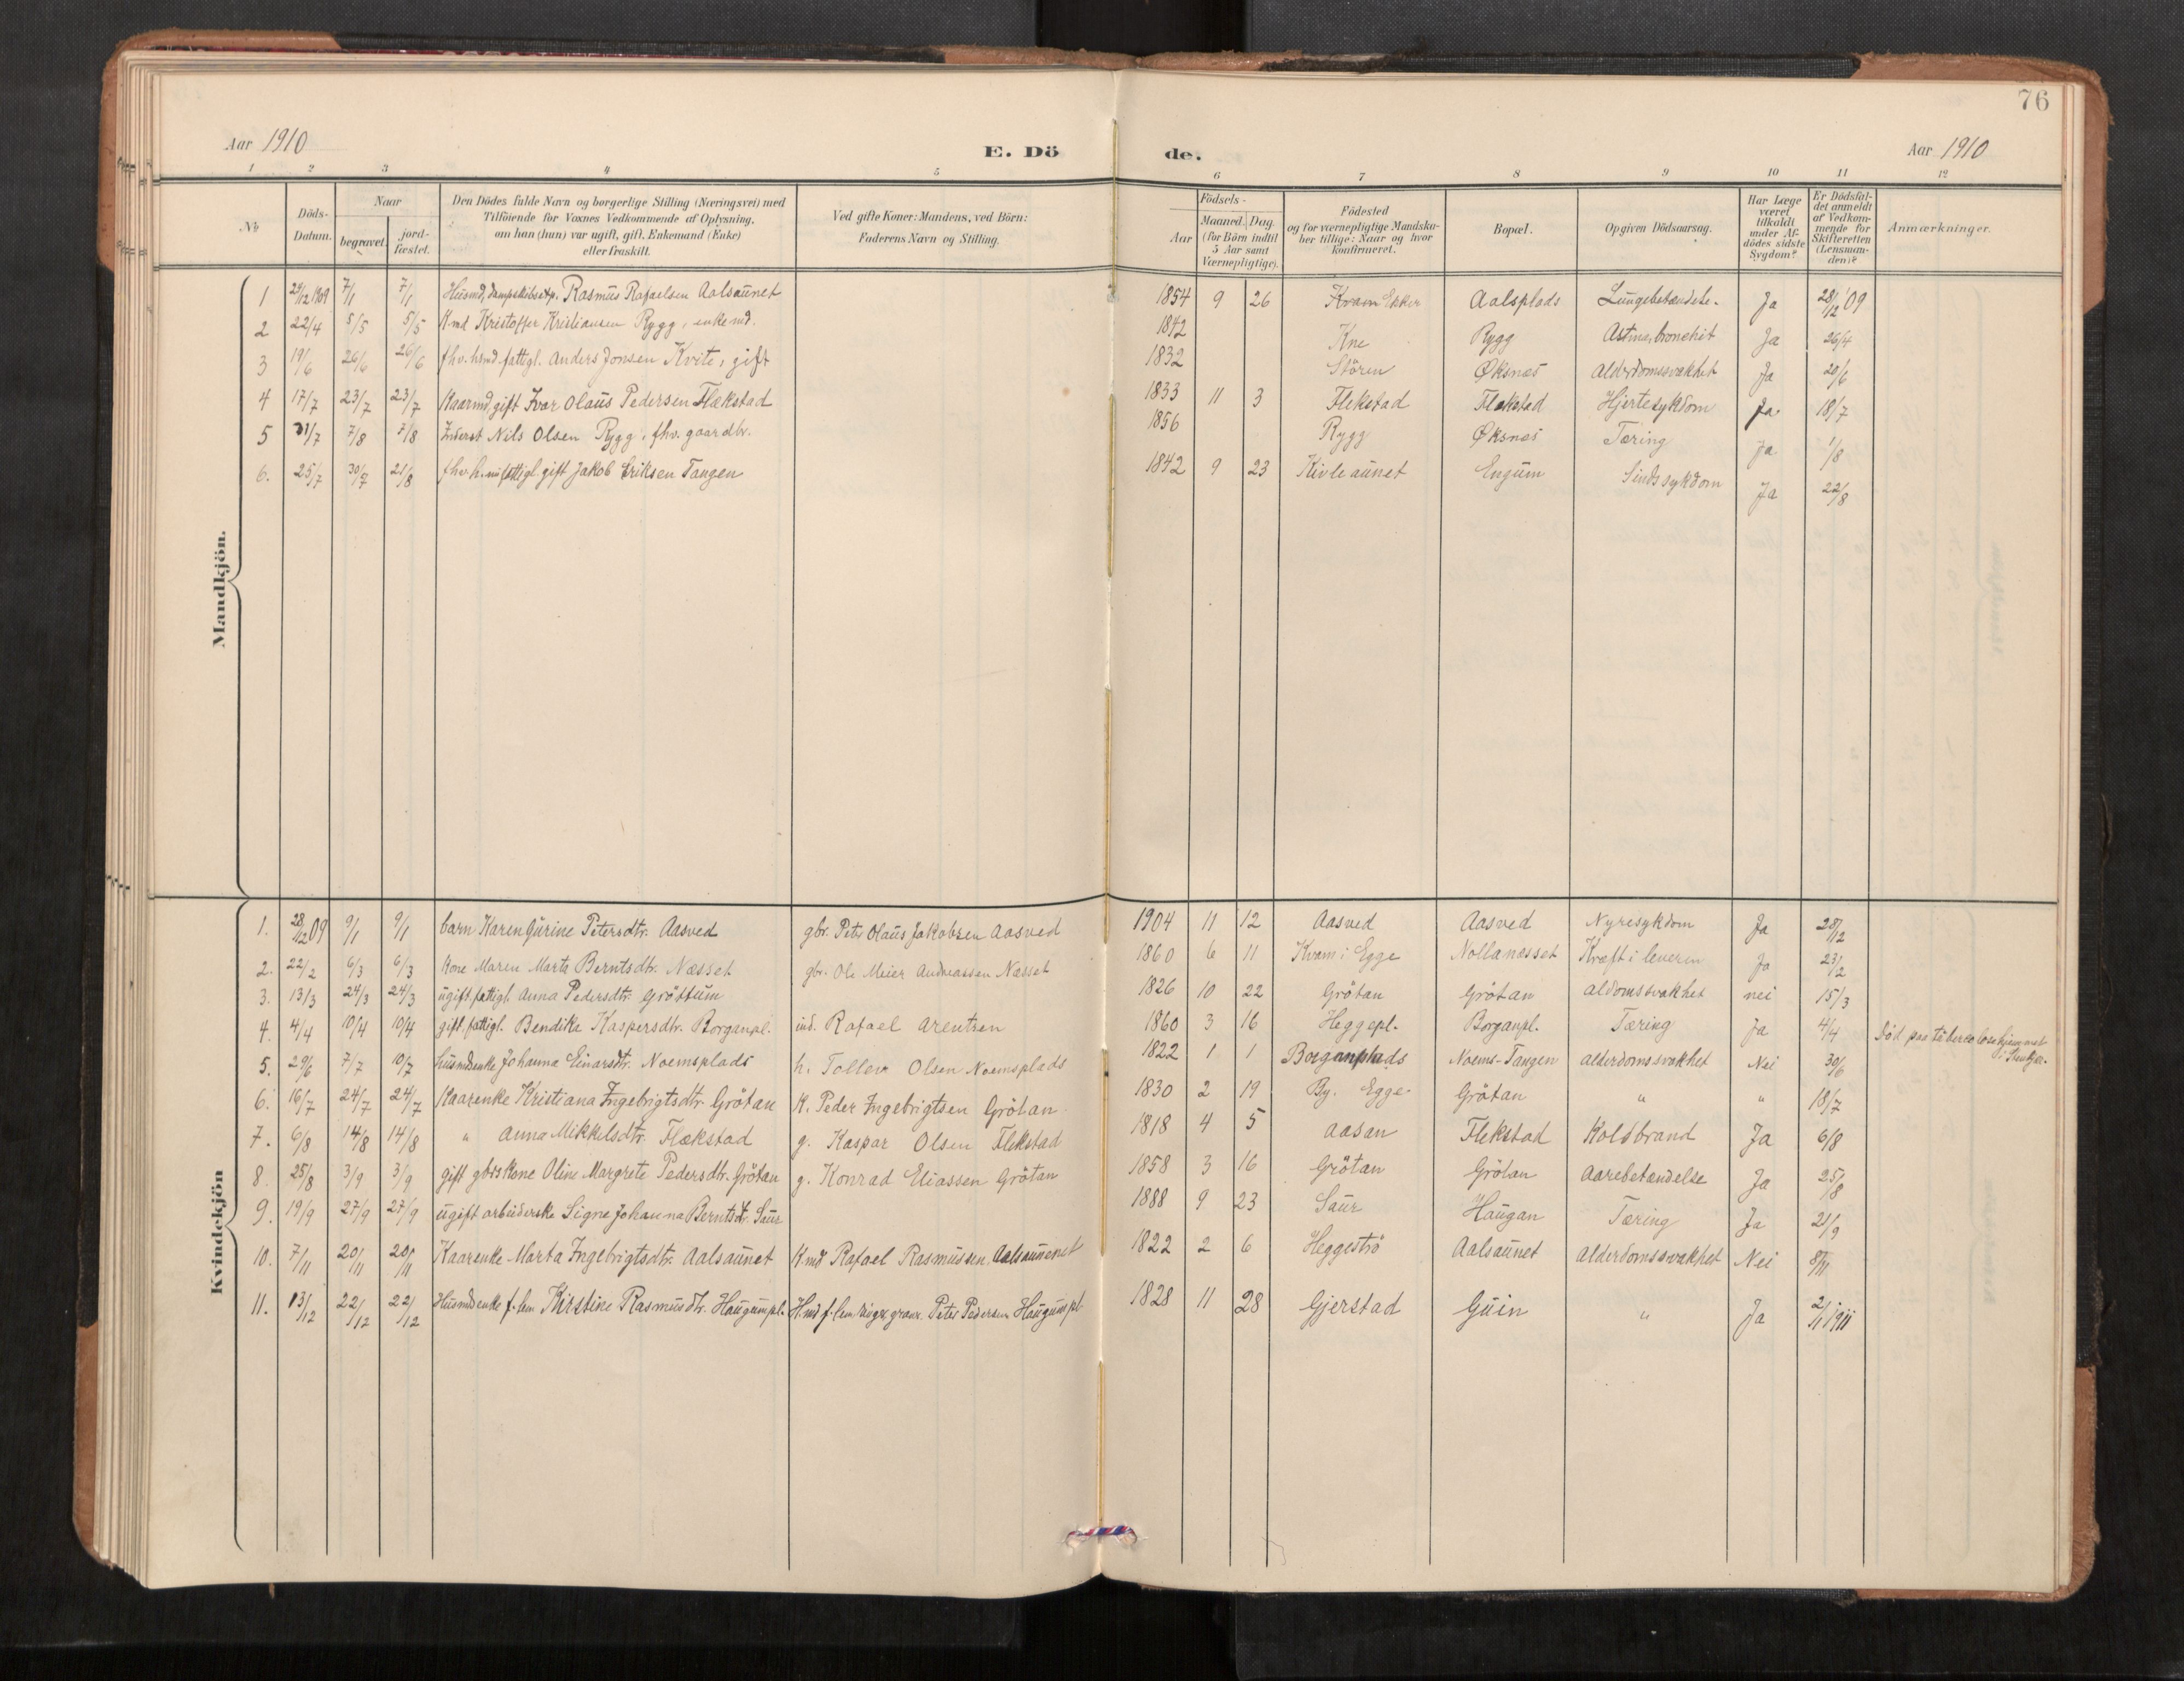 76
Aar 1910 E. Dö de. Aar 1910
1 2 3 4 5 6 7 8 9 10 11 12
No
Döds-Datum.
Naar
begravet. jordfæstet.
Den Dödes fulde Navn og borgerlige Stilling (Næringsvei) med Tilföiende for Voxnes Vedkommende af Oplysning, om han (hun) var ugift, gift, Enkemand (Enke) eller fraskilt.
Ved gifte Koner: Mandens, ved Börn: Faderens Navn og Stilling.
Födsels-
Aar Maaned. Dag. (for Börn indtil 5 Aar samt Værnepligtige).
Födested og for værnepligtige Mandskaber tillige: Naar og hvor konfirmeret.
Bopæl.
Opgiven Dödsaarsag.
Har Læge været tilkaldt under Afdödes sidste Sygdom?
Er Dödsfaldet anmeldt af Vedkommende for Skifteretten (Lensmanden)?
Anmærkninger.
Mandkjön.
1 29/12 1909 7/1 7/1 Husmd, dampskibsexp. Rasmus Rafaelsen Aalsaunet 1854 9 26 Kvam Aalsplads Lungebetændelse. Ja 28/12 '09
2 22/4 5/5 5/5 Kmd Kristoffer Kristiansen Rygg, enkemd. 1842 Kne Rygg Astma, bronchit Ja 26/4
3 19/6 26/6 26/6 fhv. hsmd fattigl. Anders Jonsen Kvite, gift 1832 Stören Øksnes Alderdomssvakhet Ja 20/6
4 17/7 23/7 23/7 Kaarmd, gift Ivar Olaus Pedersen Flækstad 1833 11 3 Flekstad Flekstad Hjertesykdom Ja 18/7
5 31/7 7/8 7/8 Inderst Nils Olsen Rygg, fhv. gaardbr. 1856 Rygg Øksnes Tæring Ja 1/8
6. 25/7 30/7 21/8 fhv. h.m fattigl. gift Jakob Eriksen Tangen 1842 9 23 Kivleaunet Engum Sindssykdom Ja 22/8
Kvindekjön
1. 28/12 09 9/1 9/1 barn Karen Gurine Petersdtr. Aasved gbr. Peter Olaus Jakobsen Aasved 1904 11 12 Aasved Aasved Nyresykdom Ja 28/12
2. 22/2 6/3 6/3 Kone Maren Marta Berntsdtr. Næsset gbr. Ole Meier Andreassen Næsset 1860 6 11 Kvam i Egge Nollanæsset Kræft i leveren Ja 23/2
3. 13/3 24/3 24/3 ugift, fattigl. Anna Pedersdtr. Gröttum 1826 10 22 Grötan Grötan aldomssvakhet nei 15/3
4. 4/4 10/4 10/4 gift fattigl. Bendika Kaspersdtr. Borganpl. ind. Rafael Arentsen 1860 3 16 Heggepl. Borganpl. Tæring Ja 4/4 Död paa tuberculosehjemmet i Stenkjer.
5. 29/6 7/7 10/7 husmdenke Johanna Einarsdtr. Noemsplads h. Tollev Olsen Noemsplads 1822 1 1 Borganplads Noems-Tangen alderdomssvakhet Nei 30/6
6. 16/7 24/7 24/7 Kaarenke Kristiana Ingebrigtsdtr. Grötan K. Peder Ingebrigtsen Grötan 1830 2 19 By. Egge Grötan " " 18/7
7. 6/8 14/8 14/8 " Anna Mikkelsdtr. Flækstad g. Kaspar Olsen Flekstad 1818 4 5 Aasan Flekstad Koldbrand Ja 6/8
8. 25/8 3/9 3/9 gift gbrs kone Oline Margrete Pedersdtr. Grötan g. Konrad Eliassen Grötan 1858 3 16 Grötan Grötan Aarebetændelse Ja 25/8
9. 19/9 27/9 27/9 ugift arbeiderske Signe Johanna Berntsdtr. Saur 1888 9 23 Saur Haugan Tæring Ja 21/9
10. 7/11 20/11 20/11 Kaarenke Marta Ingebrigtsdtr. Aalsaunet K.md Rafael Rasmussen Aalsaunet 1822 2 6 Heggeströ Aalsaunet Alderdomssvakhet Nei 8/11
11. 13/12 22/12 22/12 Husmdenke f. lem Kirstine Rasmusdtr. Haugumpl. H.md f. lem Peter Pedersen Haugumpl 1828 11 28 Gjerstad Guin " Ja 2/1 1911